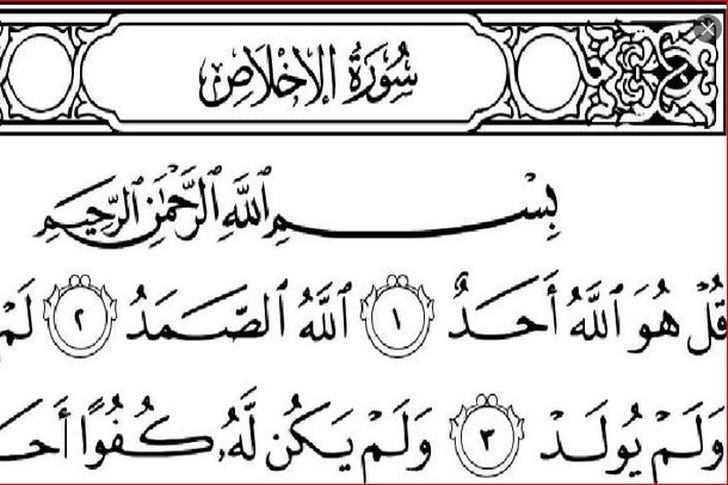 سُورَةُ الإِخْلَاصِ
بِسْمِ اللَّهِ الرَّحْمَٰنِ الرَّحِيمِ
قُلْ هُوَ اللَّهُ أَحَدٌ ١ اللَّهُ الصَّمَدُ ٢ لَمْ
وَلَمْ يُولَدْ ٣ وَلَمْ يَكُن لَّهُۥ كُفُوًا أَحَ